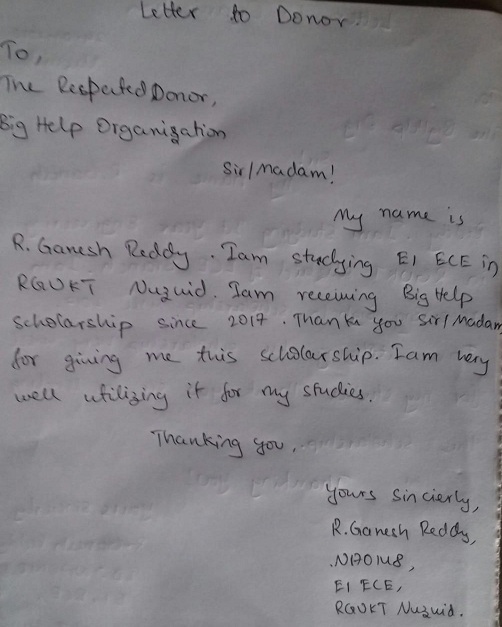 Letter to Donor.
To,
The Respeated Donor,
Big Help Organization
Sir/Madam!
My name is
R. Ganesh Reddy. Iam studying E1 ECE in
RGUKT Nuzuid. Iam receiving Big Help
Scholarship since 2017. Thank you Sir/Madam
for giving me this scholarship. Iam very
well utilizing it for my studies.
Thanking you,
Yours Sincierly,
R.Ganesh Reddy,
E1 ECE,
RGUKT Nuzuid.